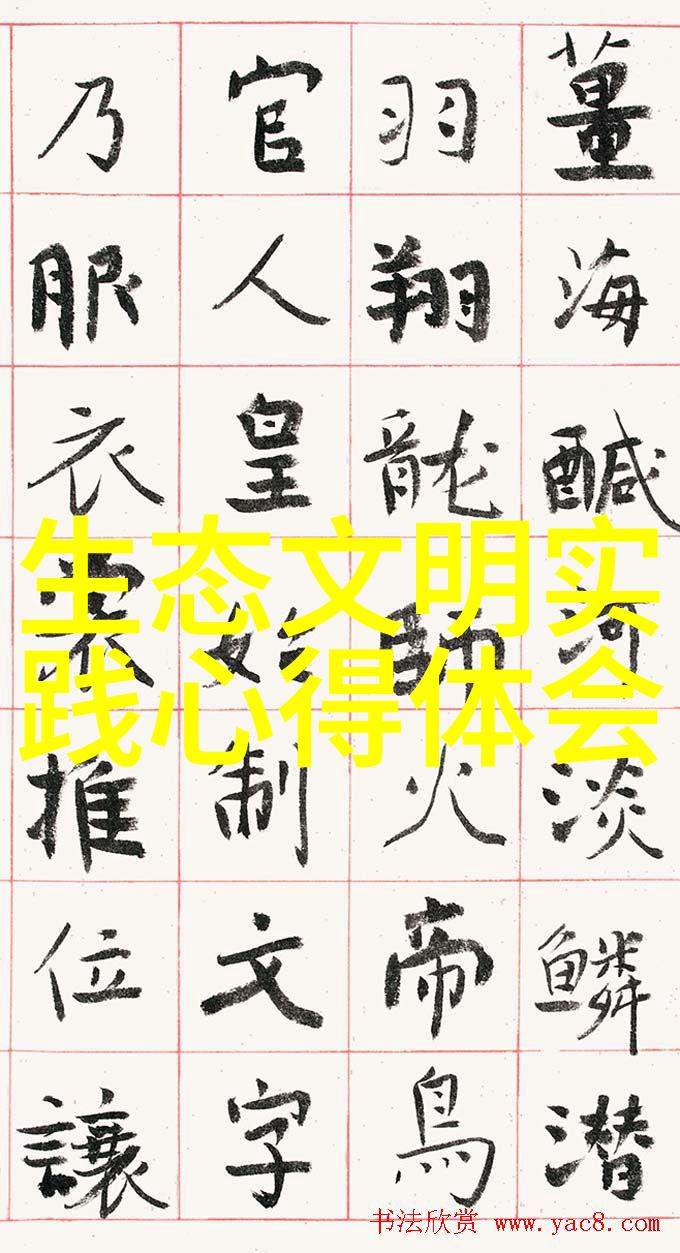 薑海鹹河淡鱗潛
羽翔龍師火帝鳥
官人皇始制文字
乃服衣裳推位讓
生态文明实
践心得体会
书法欣赏 www.yac8.com